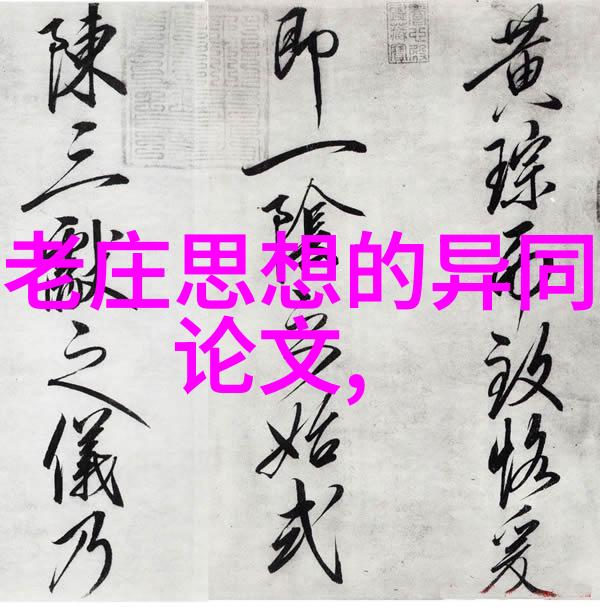 黄琮而致恪爰
即一陰始式
陳三獻之儀乃
老庄思想的异同
论文,